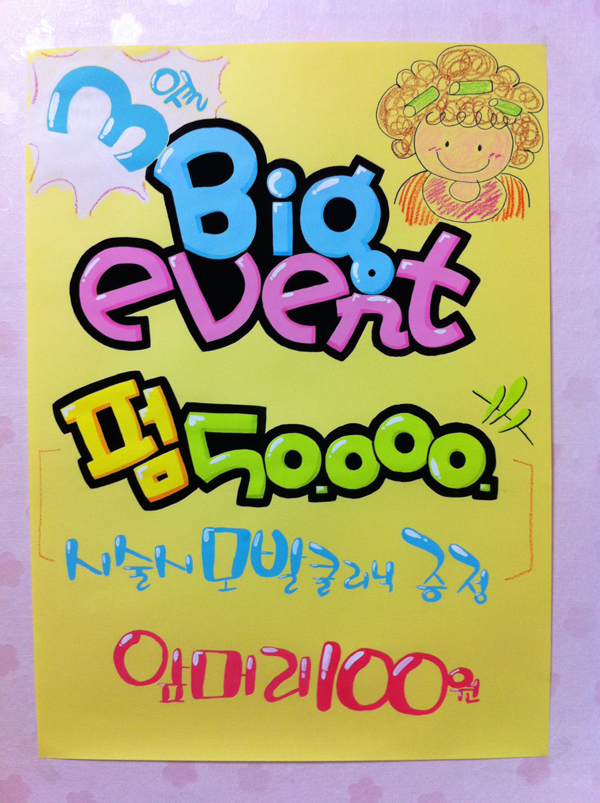 3월
Big
event
펌 50.000.
시술시 모발클리닉 증정
앞머리 100원